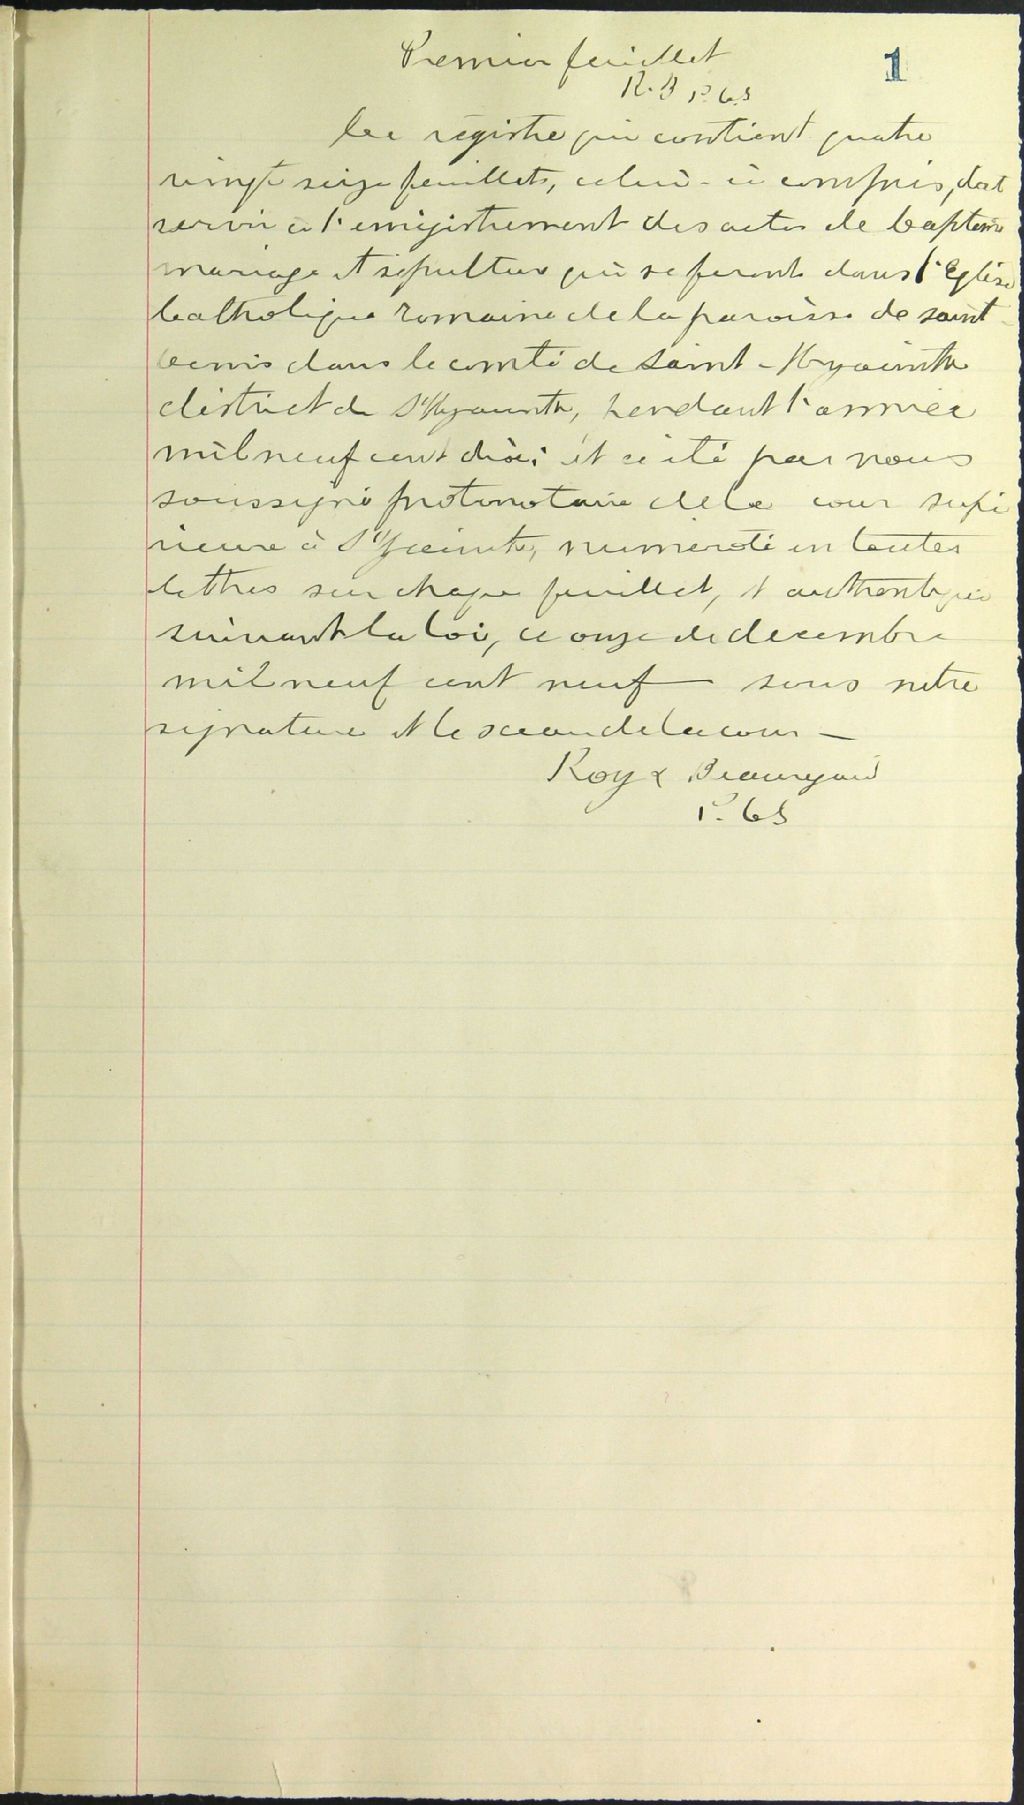 Premier feuillet
1
R. B P. C. S
Ce registre qui contient quatre
vingt seize feuillets, celui-ci compris, doit
servir à l'enregistrement des actes de baptême
mariage et sépulture qui se feront dans l'Eglise
Catholique romaine de la paroisse de saint
Denis dans le comté de Saint-Hyacinthe
district de St Hyacinthe, pendant l'année
mil neuf cent dix; et a été par nous
soussigné protonotaire de la cour supé
rieure à St Hyacinthe, numéroté en toutes
lettres sur chaque feuillet, et authentiqué
suivant la loi, ce onze de decembre
mil neuf cent neuf — sous notre
signature et le sceau de la cour —
Roy & Beauregard
P. C S